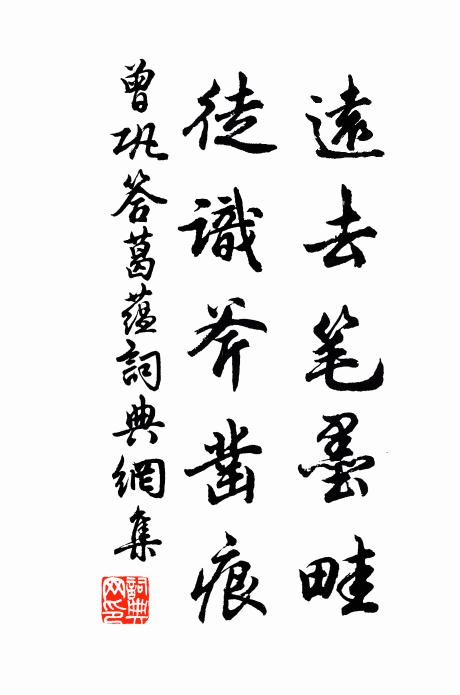 遠去笔墨畦
徒識斧鑿痕
曾巩答葛蕴詞典網集
詞典網印